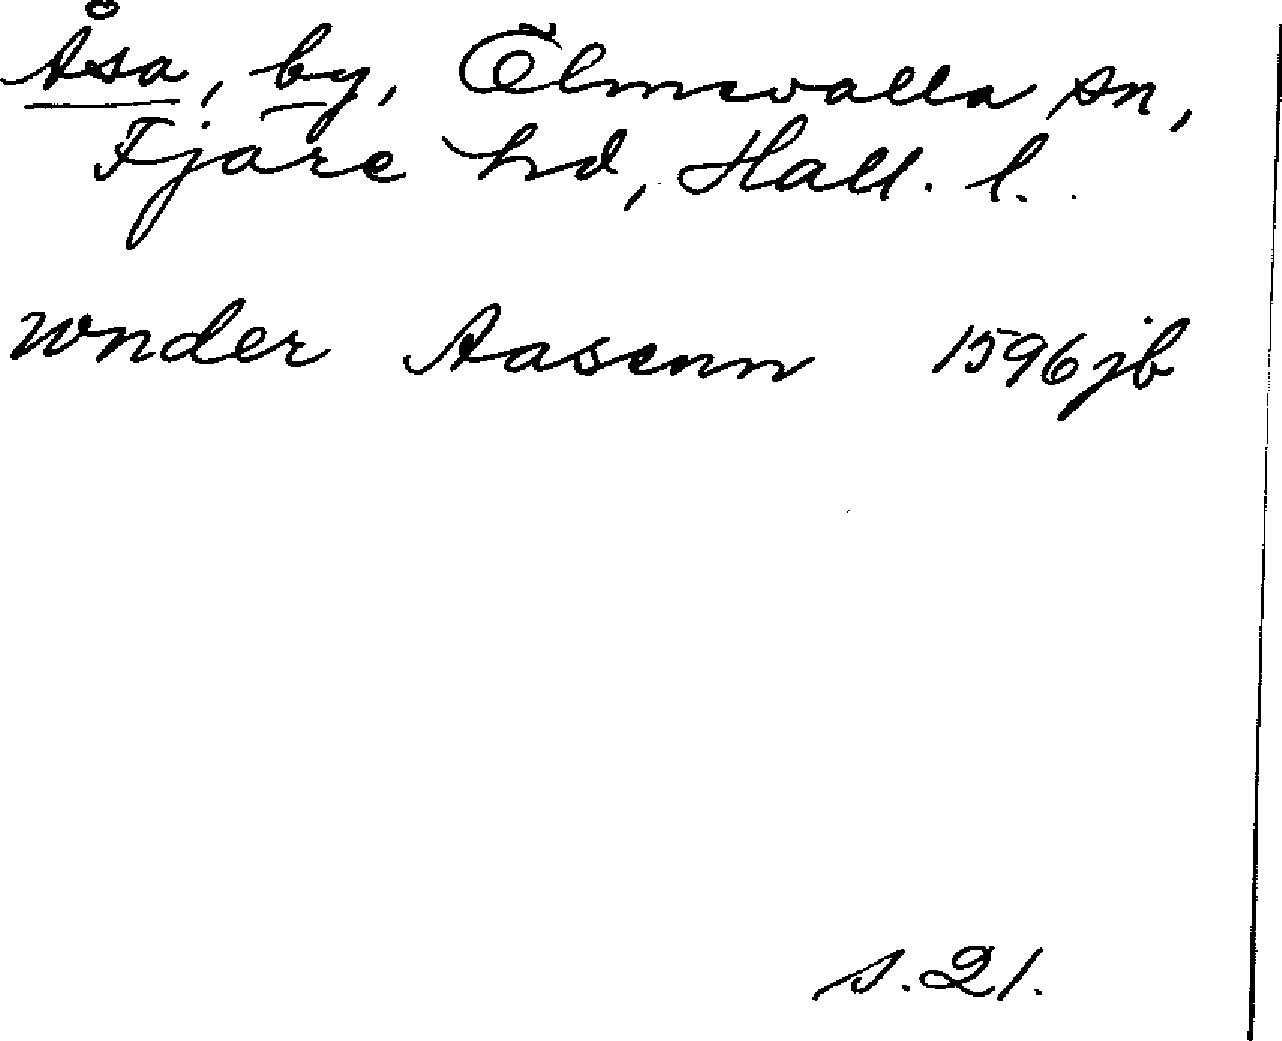 Åsa, by, Ölmevalla sn,
Fjäre hd, Hall. l.
wnder Aasenn 1596 jb
s. 21.